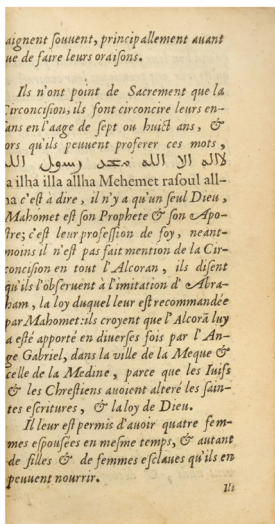 aignent souvent, principallement auant
ue de faire leurs oraisons.
Ils n'ont point de Sacrement que la
Circoncision, ils font circoncire leurs en-
ans en l'aage de sept ou huict ans, &
ors qu'ils peuuent proferer ces mots,
لااله الا الله محمد رسول الله
a ilha illa allha Mehemet rasoul all-
ha c'est à dire, il n'y a qu'un seul Dieu,
Mahomet est son Prophete & son Apo-
stre; c'est leur profession de foy, neant-
moins il n'est pas fait mention de la Cir-
concision en tout l'Alcoran, ils disent
qu'ils l'obseruent à l'imitation d'Abra-
ham, la loy duquel leur est recommandée
par Mahomet: ils croyent que l'Alcorã luy
a esté apporté en diuerses fois par l'An-
ge Gabriel, dans la ville de la Meque &
celle de la Medine, parce que les Iuifs
& les Chrestiens auoient alteré les sain-
tes escritures, & la loy de Dieu.
Il leur est permis d'auoir quatre fem-
mes espousées en mesme temps, & autant
de filles & de femmes esclaues qu'ils en
peuuent nourrir.